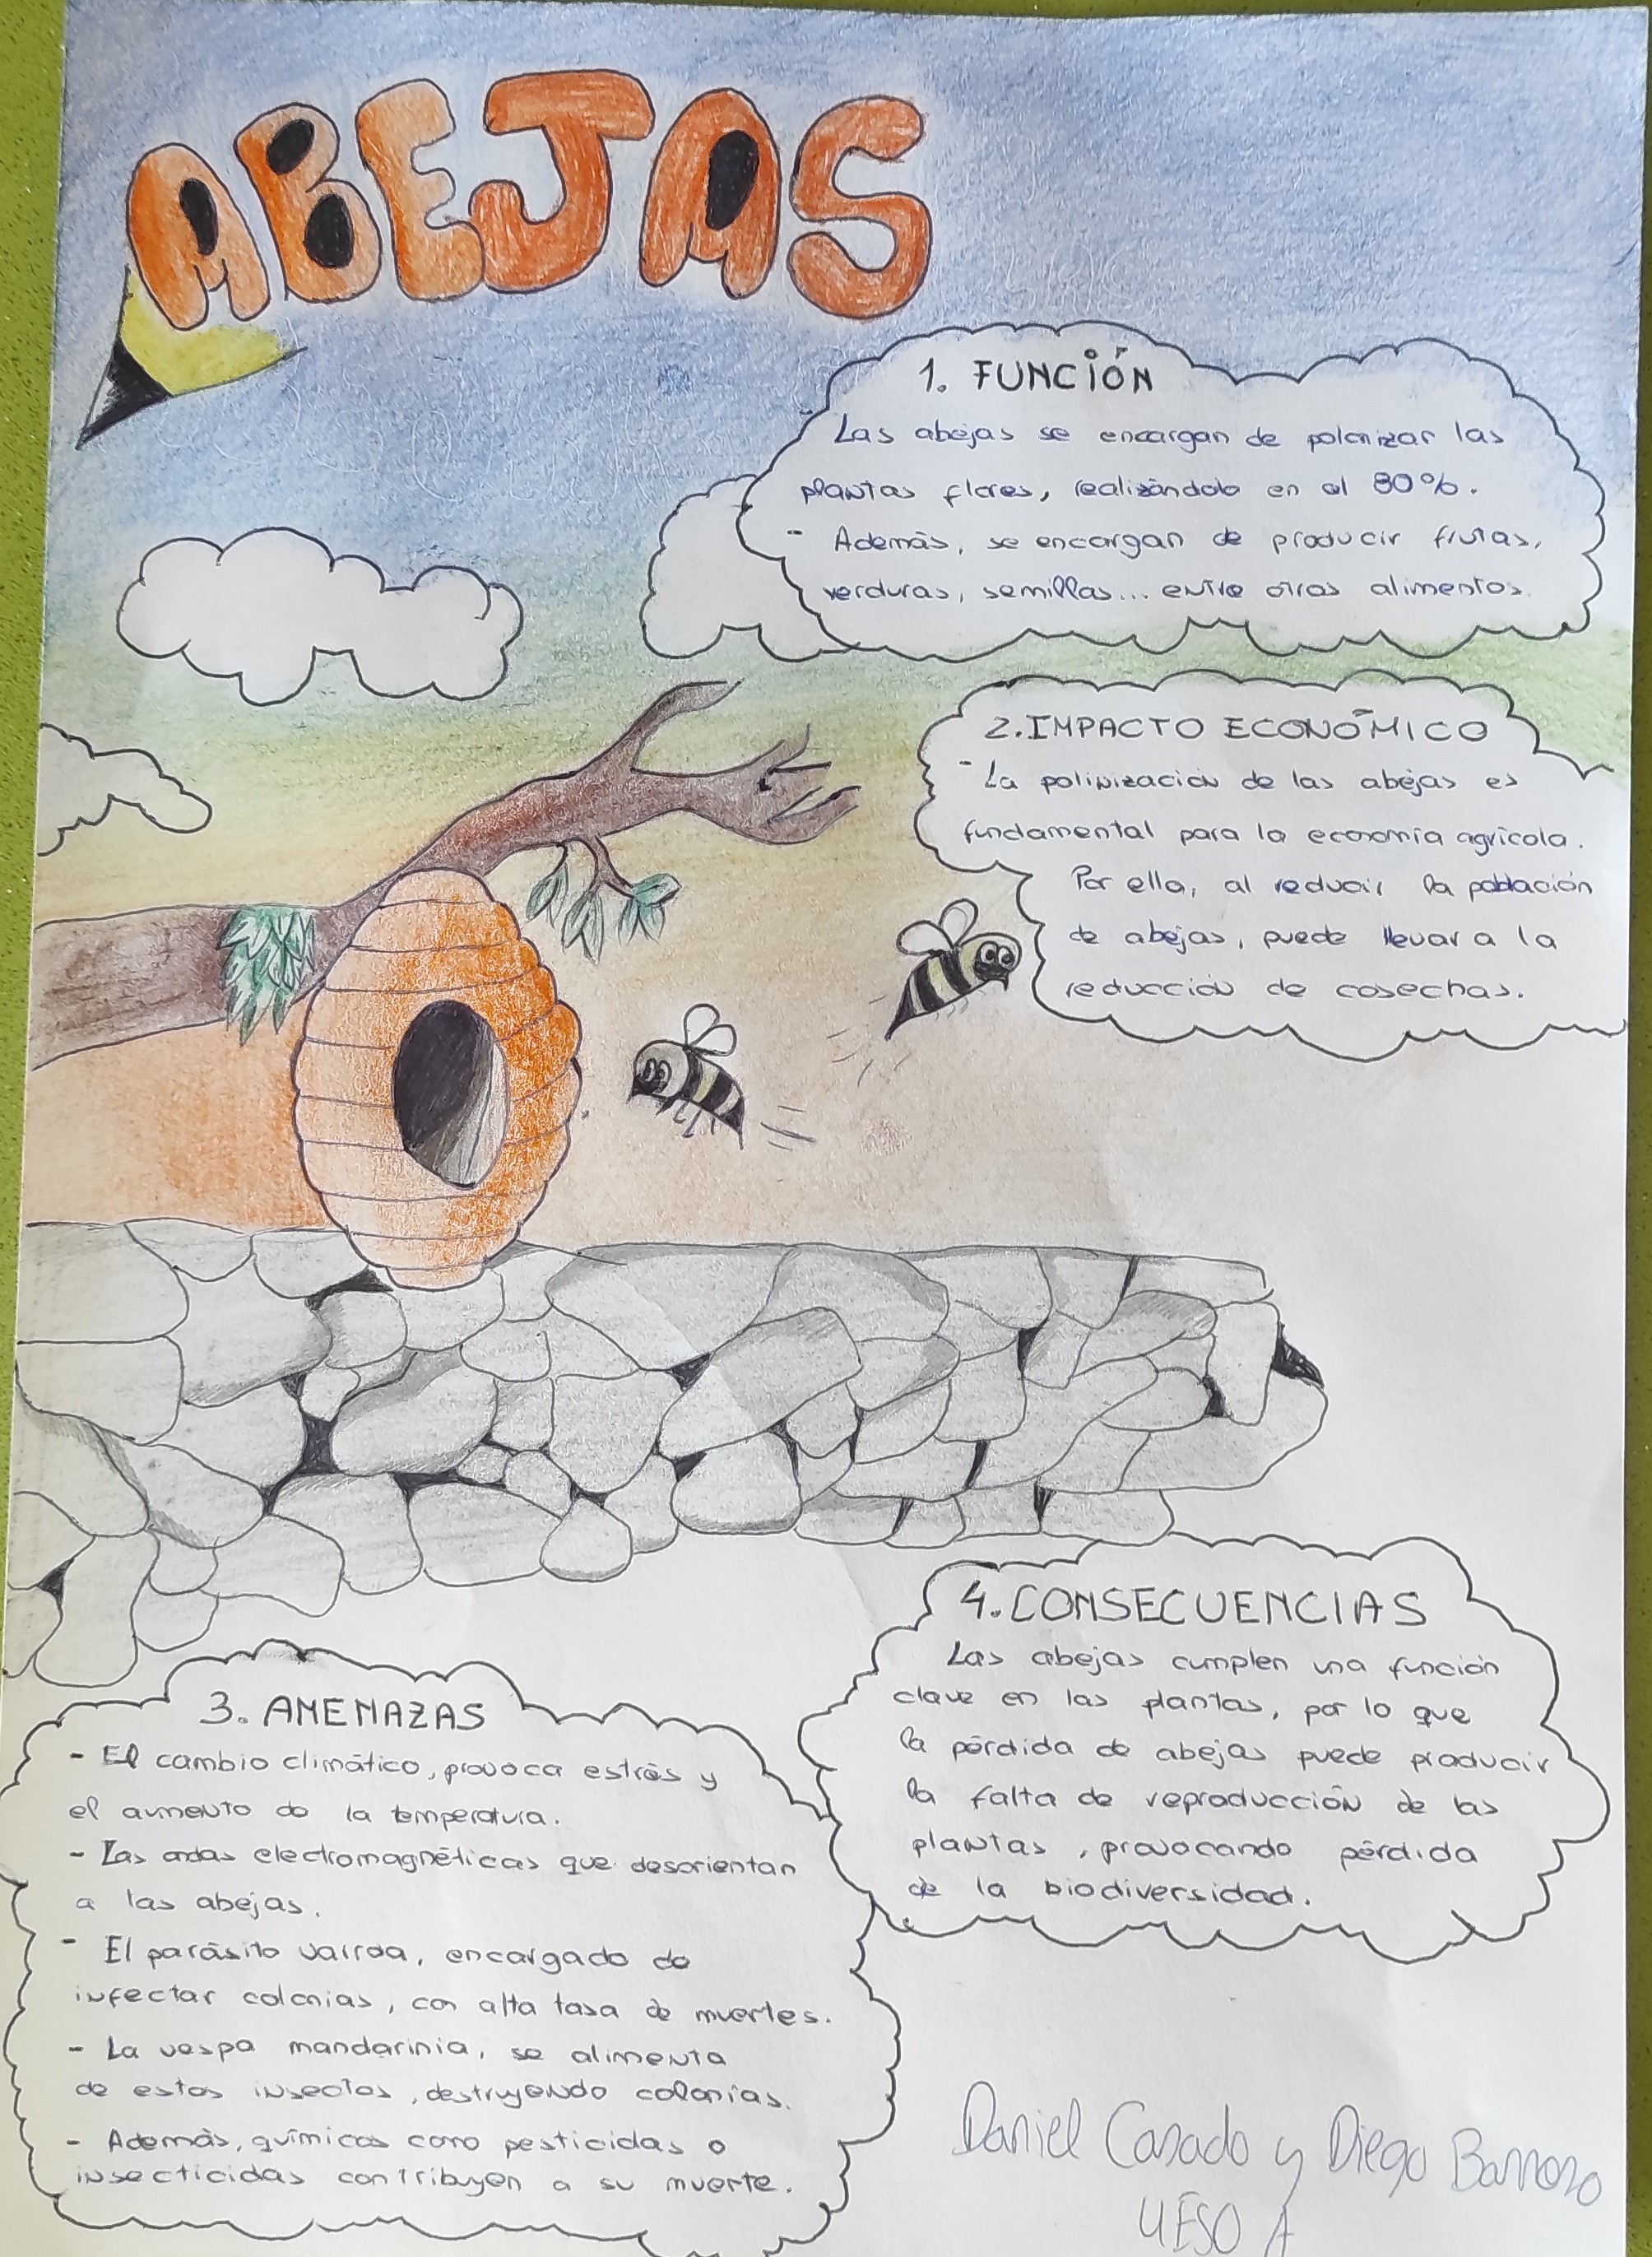 ABEJAS
1. FUNCIÓN
Las abejas se encargan de polonizar las
plantas flores, realizándolo en el 80%.
- Además, se encargan de producir frutas,
verduras, semillas... entre otros alimentos.
2. IMPACTO ECONÓMICO
- La polinización de las abejas es
fundamental para la economía agrícola.
Por ello, al reducir la población
de abejas, puede llevar a la
reducción de cosechas.
4. CONSECUENCIAS
Las abejas cumplen una función
clave en las plantas, por lo que
la pérdida de abejas puede producir
la falta de reproducción de las
plantas, provocando pérdida
de la biodiversidad.
3. AMENAZAS
- El cambio climático, provoca estrés y
el aumento de la temperatura.
- Las ondas electromagnéticas que desorientan
a las abejas.
- El parásito varroa, encargado de
infectar colonias, con alta tasa de muertes.
- La vespa mandarinia, se alimenta
de estos insectos, destruyendo colonias.
- Además, químicos como pesticidas o
insecticidas contribuyen a su muerte.
Daniel Casado y Diego Barroso
4ESO A